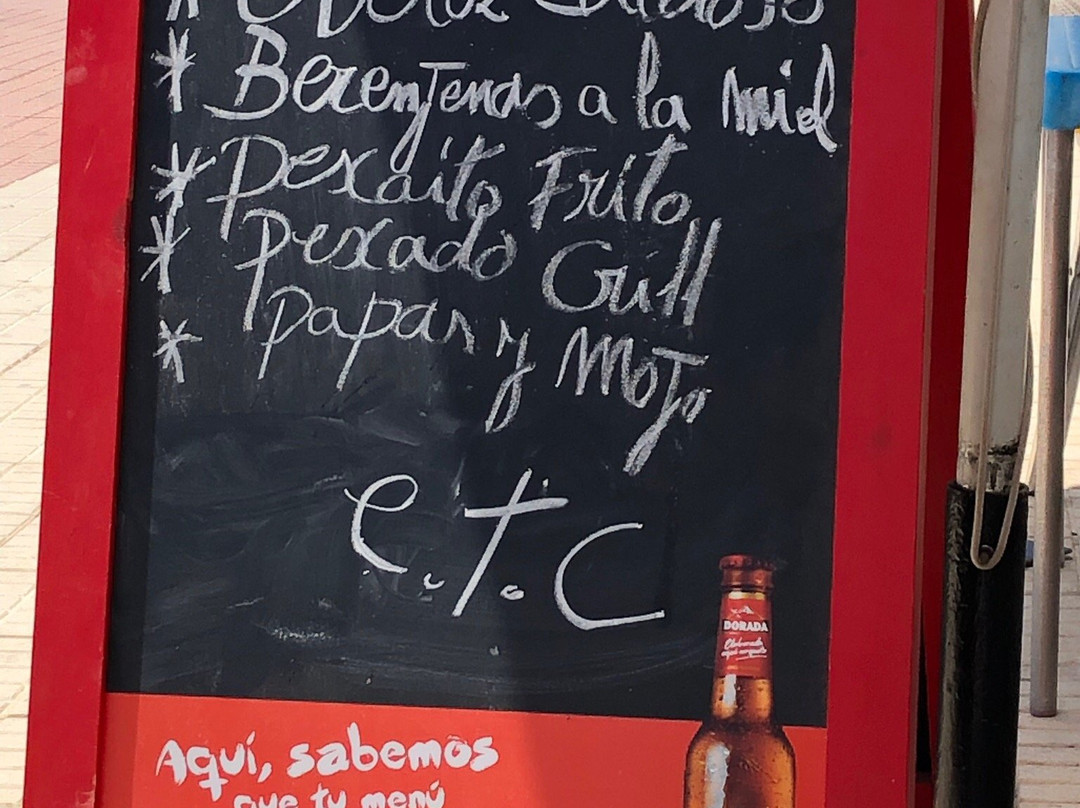 * Berenjenas a la miel
* Pescaito Frito
* Pescado Grill
* Papas y Mojo
e.t.c
DORADA
Aquí, sabemos
que tu menú